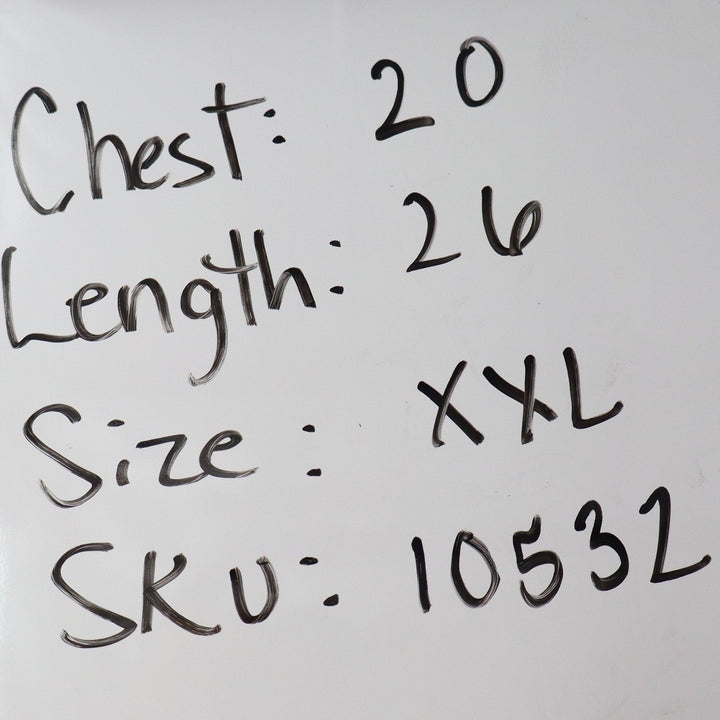 Chest: 20
Length: 26
Size: XXL
SKU: 10532